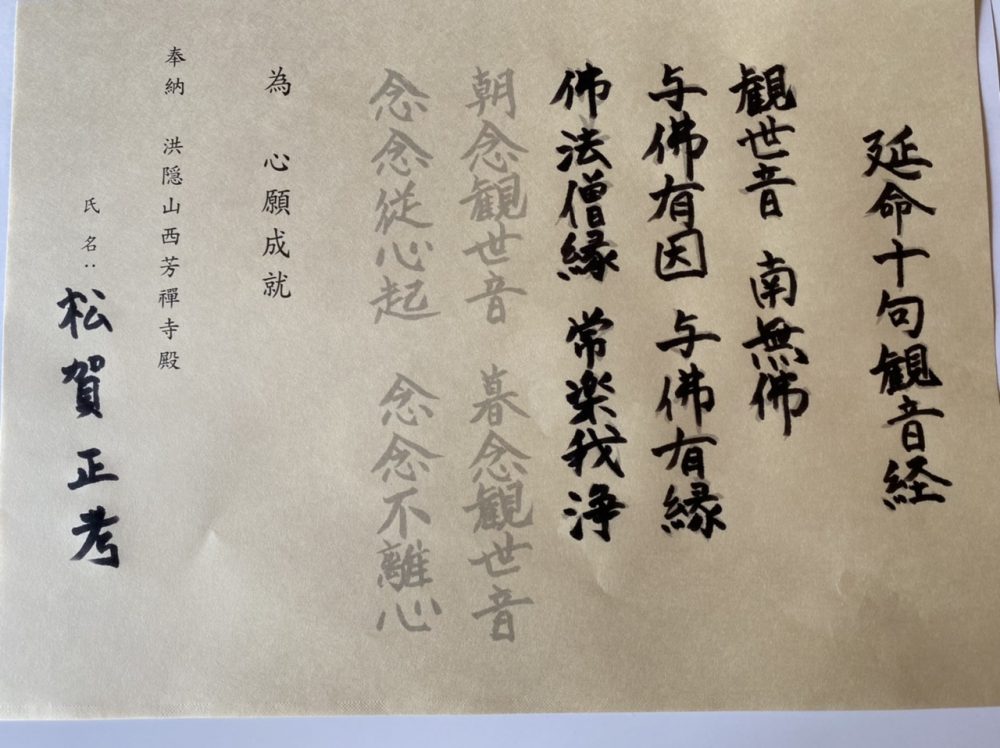 延命十句観音経
観世音 南無佛
与佛有因 与佛有縁
佛法僧縁 常楽我浄
朝念観世音 暮念観世音
念念従心起 念念不離心
為 心願成就
奉納 洪隠山西芳禪寺殿
氏名： 松賀正考